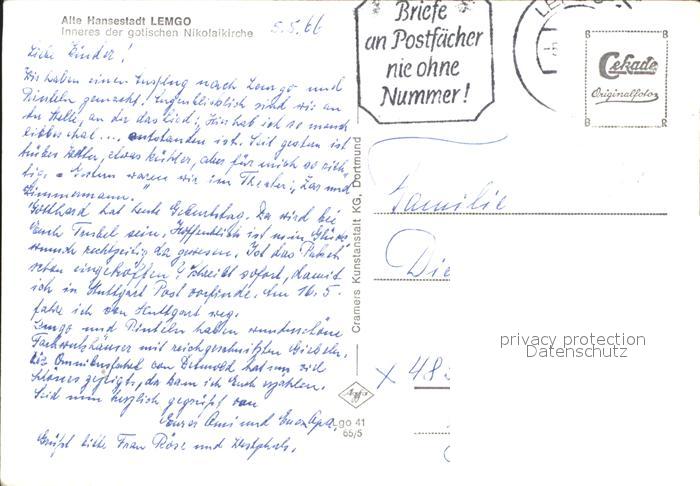 Alte Hansestadt LEMGO
Inneres der gotischen Nikolaikirche
5.5.66
Briefe
an Postfächer
nie ohne
Nummer!
LEMGO
Cekade
Originalfoto
Liebe Kinder!
Wir haben einen Ausflug nach Lemgo und
Rinteln gemacht. Augenblicklich sind wir an
der Stelle, an der das Lied: "Hier hab ich so manch
liebes Mal... entstanden ist. Seit gestern ist
trübes Wetter, etwas kühler, aber für mich so rich-
tig. - Gestern waren wir im Theater: "Zar und
Zimmermann."
Gotthard hat heute Geburtstag. Da wird bei
Euch Trubel sein. Hoffentlich ist mein Glück-
wunsch rechtzeitig da gewesen. Ist das Paket
schon eingetroffen? Schreibt sofort, damit
ich in Stuttgart Post vorfinde. Am 16.5.
fahre ich von Stuttgart weg.
Lemgo und Rinteln haben wunderschöne
Fachwerkhäuser mit reichgeschnitzten Giebeln.
Die Omnibusfahrt von Detmold hat uns viel
Schönes gezeigt, da kann ich Euch erzählen.
Seid nun herzlich gegrüßt von
Eurer Omi und Euer Opa.
Grüßt bitte Frau Röse und
Cramers Kunstanstalt KG, Dortmund
Agfa
go 41
65/5
Familie
Die
X 48
privacy protection
Datenschutz